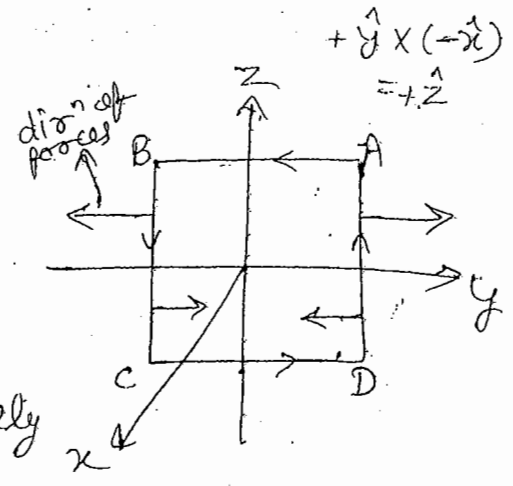 + ŷ × (−x̂)
= + ẑ
Z
dirⁿ of
forces
B
A
y
C
D
ely
x